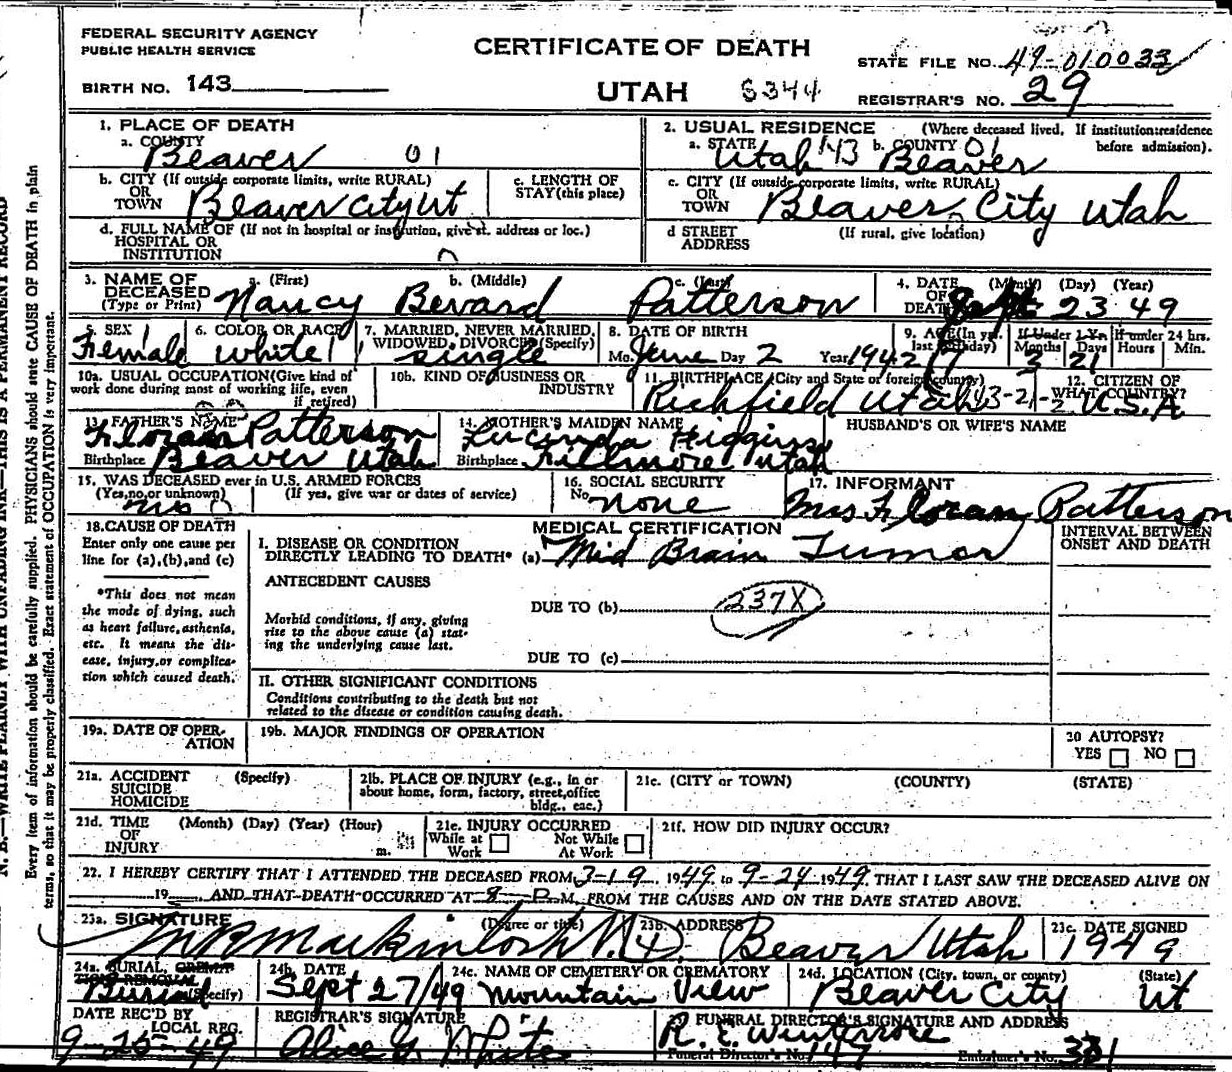 FEDERAL SECURITY AGENCY
PUBLIC HEALTH SERVICE
BIRTH NO. 143
CERTIFICATE OF DEATH
UTAH S344
STATE FILE NO. 49-010033
REGISTRAR'S NO. 29
1. PLACE OF DEATH
a. COUNTY
Beaver 01
2. USUAL RESIDENCE (Where deceased lived. If institution:residence before admission).
a. STATE Utah 43 b. COUNTY 01 Beaver
b. CITY (If outside corporate limits, write RURAL)
OR
TOWN Beaver City Ut
c. LENGTH OF
STAY (this place)
c. CITY (If outside corporate limits, write RURAL)
OR
TOWN Beaver City Utah
d. FULL NAME OF (If not in hospital or institution, give st. address or loc.)
HOSPITAL OR
INSTITUTION
d STREET (If rural, give location)
ADDRESS
3. NAME OF a. (First) b. (Middle) c. (Last)
DECEASED
(Type or Print) Nancy Bevard Patterson
4. DATE (Month) (Day) (Year)
OF
DEATH Sept 23 49
5. SEX 1
Female
6. COLOR OR RACE
white 1
7. MARRIED, NEVER MARRIED,
WIDOWED, DIVORCED (Specify)
single
8. DATE OF BIRTH
Mo. June Day 2 Year 1942
9. AGE (In yrs. last birthday) 7
If Under 1 Yr.
Months 3 Days 21
If under 24 hrs.
Hours Min.
10a. USUAL OCCUPATION (Give kind of
work done during most of working life, even
if retired)
10b. KIND OF BUSINESS OR
INDUSTRY
11. BIRTHPLACE (City and State or foreign country)
Richfield Utah 43-21-2
12. CITIZEN OF
WHAT COUNTRY?
U.S.A
13. FATHER'S NAME
Floran Patterson
Birthplace Beaver Utah
14. MOTHER'S MAIDEN NAME
Lucinda Higgins
Birthplace Fillmore Utah
HUSBAND'S OR WIFE'S NAME
15. WAS DECEASED ever in U.S. ARMED FORCES
(Yes, no, or unknown) (If yes, give war or dates of service)
no
16. SOCIAL SECURITY
No. none
17. INFORMANT
Mrs Floran Patterson
18. CAUSE OF DEATH
Enter only one cause per
line for (a), (b), and (c)
*This does not mean
the mode of dying, such
as heart failure, asthenia,
etc. It means the dis-
ease, injury, or complica-
tion which caused death.
MEDICAL CERTIFICATION
I. DISEASE OR CONDITION
DIRECTLY LEADING TO DEATH* (a) Mid Brain Tumor
ANTECEDENT CAUSES
DUE TO (b) 237X
Morbid conditions, if any, giving
rise to the above cause (a) stat-
ing the underlying cause last.
DUE TO (c)
II. OTHER SIGNIFICANT CONDITIONS
Conditions contributing to the death but not
related to the disease or condition causing death.
INTERVAL BETWEEN
ONSET AND DEATH
19a. DATE OF OPER-
ATION
19b. MAJOR FINDINGS OF OPERATION
20 AUTOPSY?
YES NO
21a. ACCIDENT (Specify)
SUICIDE
HOMICIDE
21b. PLACE OF INJURY (e.g., in or
about home, form, factory, street, office
bldg., eac.)
21c. (CITY or TOWN) (COUNTY) (STATE)
21d. TIME (Month) (Day) (Year) (Hour)
OF
INJURY m.
21e. INJURY OCCURRED
While at Work Not While At Work
21f. HOW DID INJURY OCCUR?
22. I HEREBY CERTIFY THAT I ATTENDED THE DECEASED FROM 3-19 1949 to 9-24 1949 THAT I LAST SAW THE DECEASED ALIVE ON
19 AND THAT DEATH OCCURRED AT 8 P M, FROM THE CAUSES AND ON THE DATE STATED ABOVE.
23a. SIGNATURE (Degree or title)
Mackintosh
23b. ADDRESS
Beaver Utah
23c. DATE SIGNED
1949
24a. BURIAL, CREMATION, REMOVAL (Specify)
Burial
24b. DATE
Sept 27/49
24c. NAME OF CEMETERY OR CREMATORY
Mountain View
24d. LOCATION (City, town, or county) (State)
Beaver City Ut
DATE REC'D BY
LOCAL REG.
9-26-49
REGISTRAR'S SIGNATURE
Alice G White
FUNERAL DIRECTOR'S SIGNATURE AND ADDRESS
R. E.
Funeral Director's No. 147 Embalmer's No. 331
N. B.—WRITE PLAINLY WITH UNFADING INK—THIS IS A PERMANENT RECORD
Every item of information should be carefully supplied. PHYSICIANS should state CAUSE OF DEATH in plain
terms, so that it may be properly classified. Exact statement of OCCUPATION is very important.